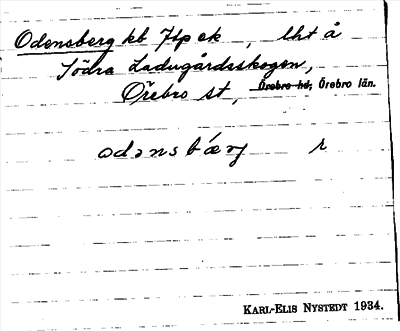 Odensberg kb Jlp ek, lht å
Södra Ladugårdsskogen,
Örebro st, Örebro hd, Örebro län.
odənsbǽrj r
KARL-ELIS NYSTEDT 1934.